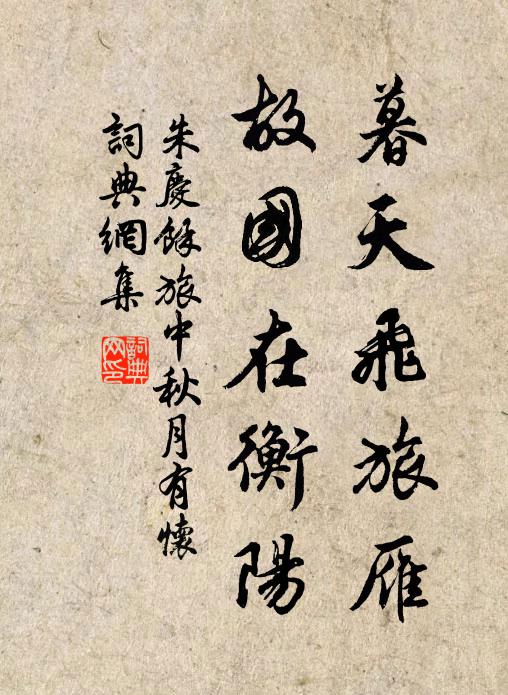 暮天飛旅雁
故國在衡陽
朱慶餘旅中秋月有懷
詞典網集
詞典
网印